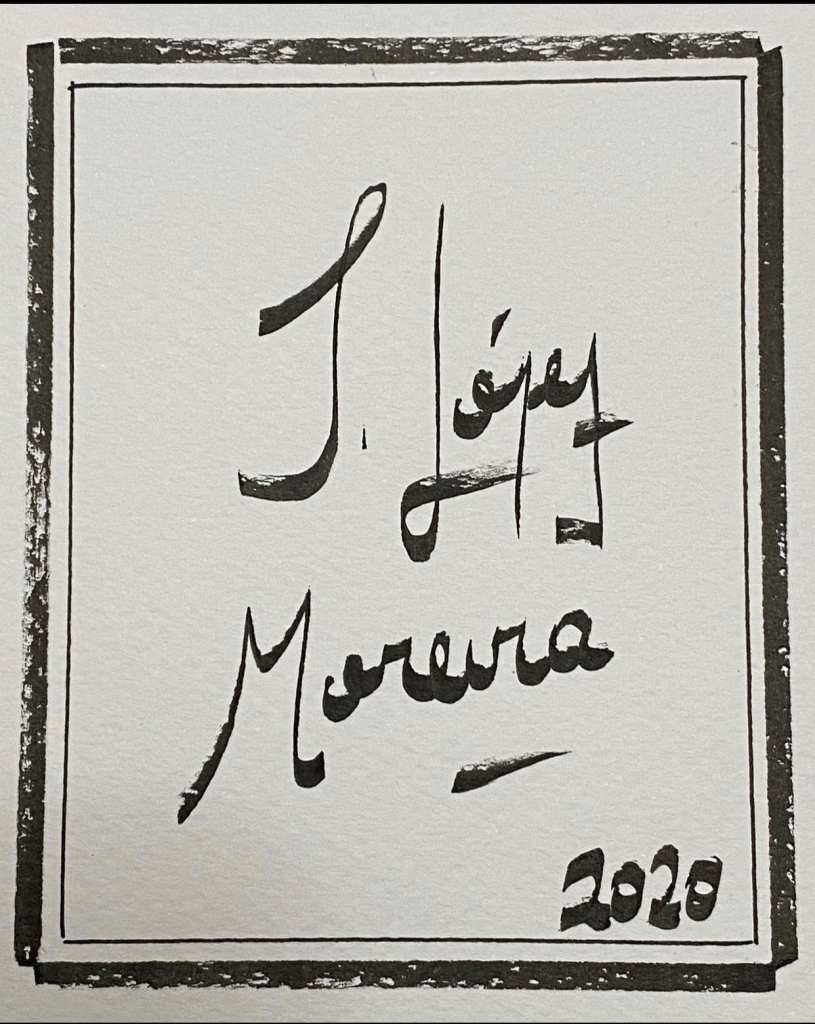 J. López
Moreira
2020